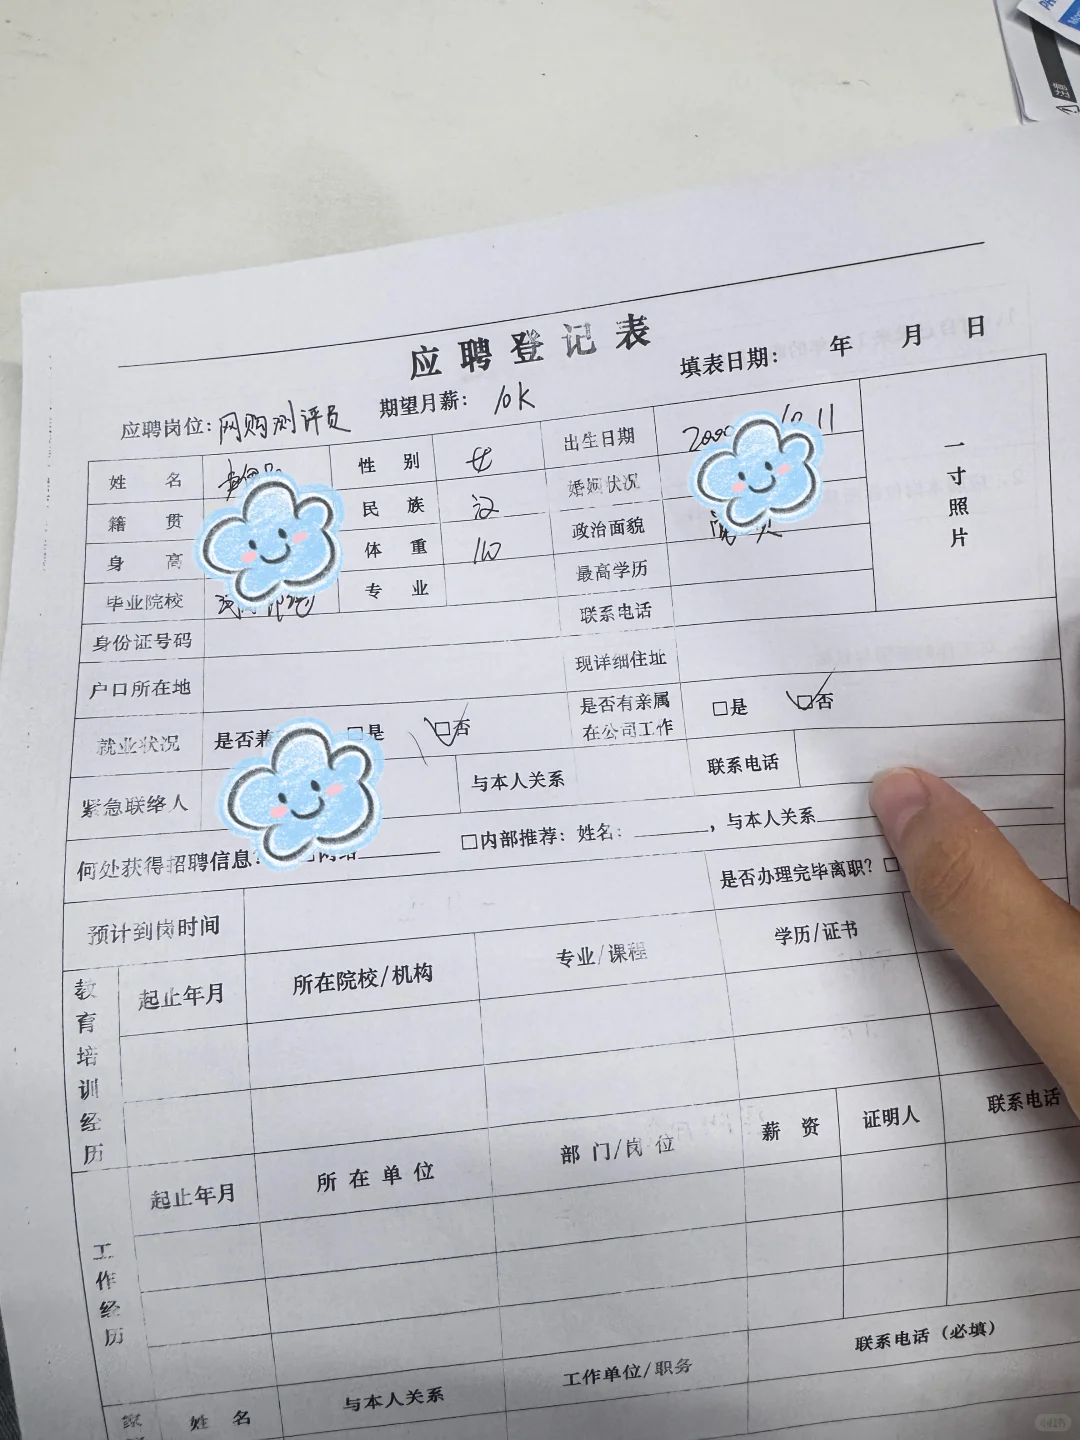 应聘登记表
填表日期： 年 月 日
应聘岗位：网购测评员 期望月薪：10K
姓名 性别 女 出生日期 2000 10 11 一寸照片
籍贯 民族 汉 婚姻状况
身高 体重 110 政治面貌
毕业院校 专业 最高学历
身份证号码 联系电话
户口所在地 现详细住址
就业状况 是否兼 □是 □否 是否有亲属在公司工作 □是 □否
紧急联络人 与本人关系 联系电话
何处获得招聘信息？ □内部推荐：姓名：______，与本人关系
预计到岗时间 是否办理完毕离职？□
教育培训经历 起止年月 所在院校/机构 专业/课程 学历/证书
工作经历 起止年月 所在单位 部门/岗位 薪资 证明人 联系电话
姓名 与本人关系 工作单位/职务 联系电话（必填）